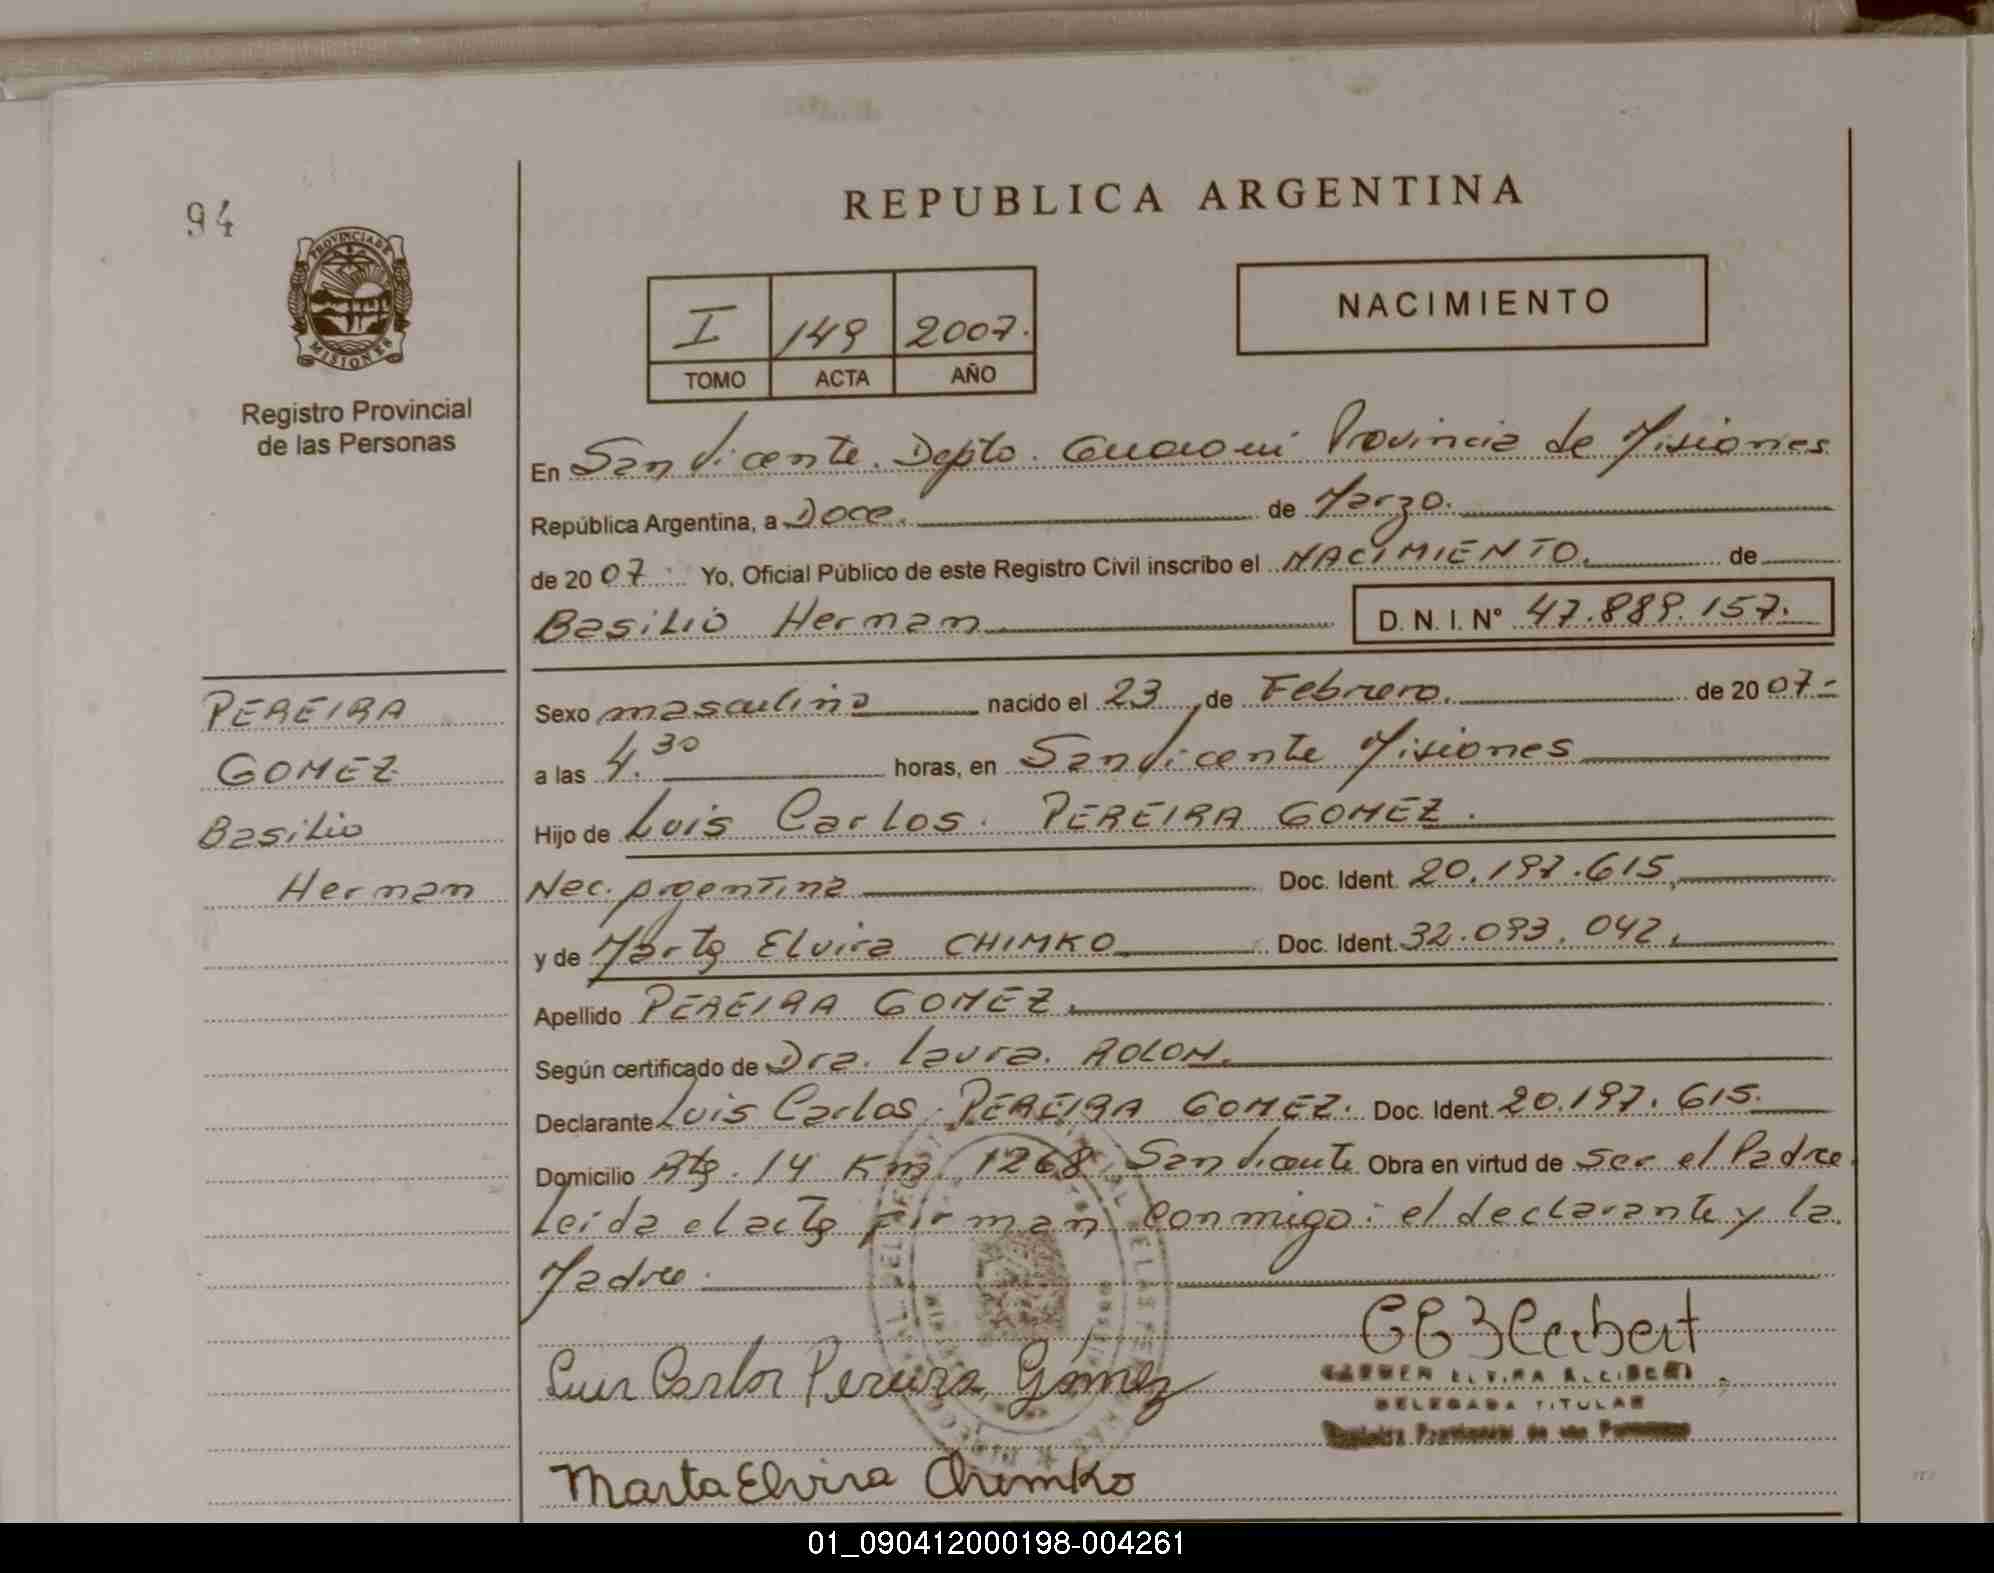 94
REPUBLICA ARGENTINA
PROVINCIA DE
MISIONES
Registro Provincial
de las Personas
I 149 2007.
TOMO ACTA AÑO
NACIMIENTO
En San Vicente. Depto. Guaraní Provincia de Misiones
República Argentina, a Doce. de Marzo.
de 2007 Yo, Oficial Público de este Registro Civil inscribo el NACIMIENTO. de
Basilio Hernan D. N. I. N° 47.889.157.
PEREIRA
GOMEZ
Basilio
Hernan
Sexo masculino nacido el 23 de Febrero. de 2007-
a las 4.30 horas, en San Vicente Misiones
Hijo de Luis Carlos. PEREIRA GOMEZ.
Nac. Argentina Doc. Ident. 20.197.615,
y de Marta Elvira CHIMKO Doc. Ident. 32.093.042,
Apellido PEREIRA GOMEZ.
Según certificado de Dra. Laura. ROLON.
Declarante Luis Carlos. PEREIRA GOMEZ. Doc. Ident. 20.197.615.
Domicilio Rta. 14 Km. 1268, San Vicente Obra en virtud de ser el Padre.
Leída el acta firman conmigo: el declarante y la
Madre.
Luis Carlos Pereira Gómez
CARMEN ELVIRA
DELEGADA TITULAR
Registro Provincial de las Personas
Marta Elvira Chimko
01_090412000198-004261